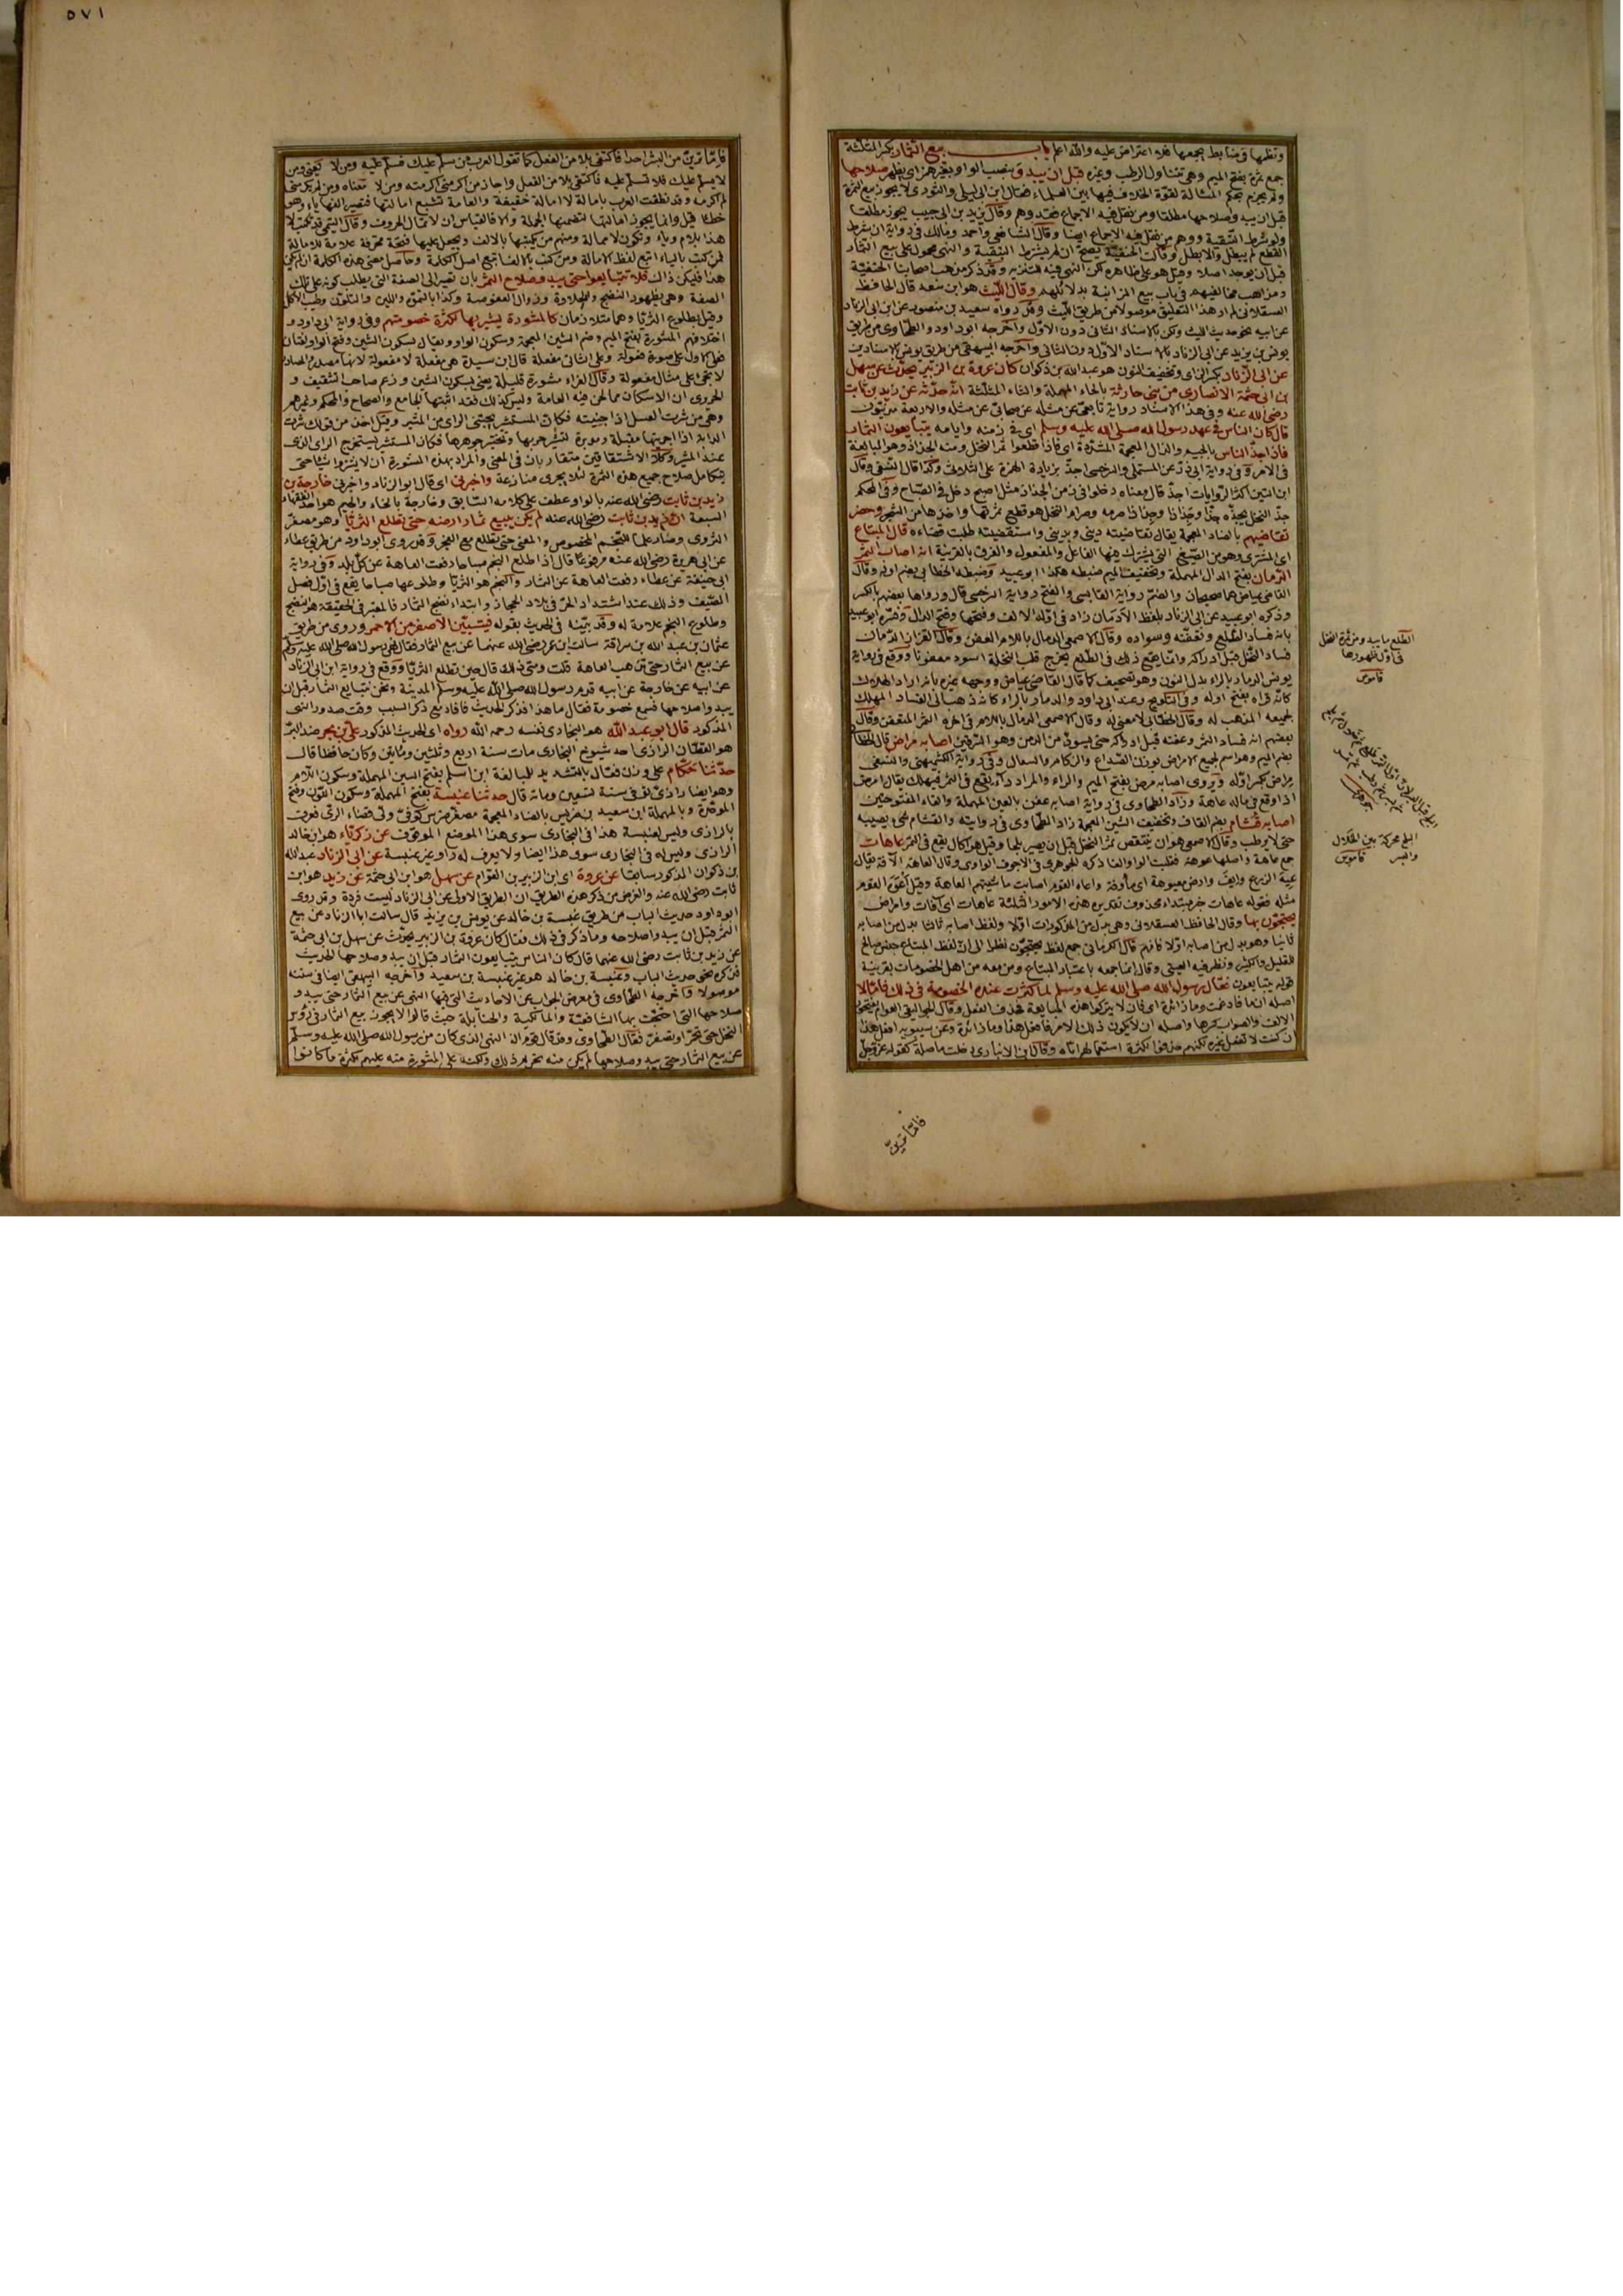 ونظمها في ضابط يجمعها فلا اعتراض عليه والله اعلم باب بيع الثمار بكسر المثلثة
جمع ثمرة بفتح الميم وهي تتناول الرطب وغيره قبل ان يبدو بنصب الواو بغير همز اي يظهر صلاحها
ولم يجزم بحكم المسألة لقوة الخلاف فيها بين العلماء فقال ابن ابي ليلى والثوري لا يجوز بيع الثمرة
قبل ان يبدو صلاحها مطلقا ومن نقل فيه الاجماع فقد وهم وقال يزيد بن ابي حبيب يجوز مطلقا
ولو شرط التبقية ووهم من نقل فيه الاجماع ايضا وقال الشافعي واحمد ومالك في رواية ان شرط
القطع لم يبطل والا بطل وقالت الحنفية يصح ان لم يشترط التبقية والنهي محمول على بيع الثمار
قبل ان يوجد اصلا وقيل هو على ظاهره لكن النهي فيه للتنزيه وقد ذكر مذهب اصحابنا الحنفية
ومذاهب مخالفيهم في باب بيع المزابنة بدلائلهم وقال الليث هو ابن سعد قال الحافظ
العسقلاني لم ار هذا التعليق موصولا من طريق الليث وقد رواه سعيد بن منصور عن ابن ابي الزناد
عن ابيه نحو حديث الليث ولكن بالاسناد الثاني دون الاول واخرجه ابو داود والطحاوي من طريق
يونس بن يزيد عن ابي الزناد بالاسناد الاول دون الثاني واخرجه البيهقي من طريق يونس بالاسنادين
عن ابي الزناد بكسر الزاي وتخفيف النون هو عبد الله بن ذكوان كان عروة بن الزبير يحدث عن سهل
بن ابي حثمة الانصاري من بني حارثة بالحاء المهملة والثاء المثلثة انه حدثه عن زيد بن ثابت
رضي الله عنه وفي هذا الاسناد رواية تابعي عن مثله عن صحابي عن مثله والاربعة مدنيون
قال كان الناس في عهد رسول الله صلى الله عليه وسلم اي في زمنه وايامه يتبايعون الثمار
فاذا جذ الناس بالجيم والذال المعجمة المشددة اي فاذا قطعوا ثمر النخل ومنه الجذاذ وهو المبالغة
في الامر وفي رواية ابي ذر عن المستملي والسرخسي اجذ بزيادة الهمزة على الثلاثي وكذا قال النسفي وقال
ابن التين اكثر الروايات اجذ قال ومعناه دخلوا في زمن الجذاذ مثل اصبح دخل في الصباح وفي المحكم
جذ النخل يجذه جذا وجذاذا وجذاذا صرمه وصرام النخل هو قطع ثمرتها واخذها من الشجر وحضر
تقاضيهم بالضاد المعجمة يقال تقاضيته ديني وبديني واستقضيته طلبت قضاءه قال المبتاع
اي المشتري وهو من الصيغ التي يشترك فيها الفاعل والمفعول والفرق بالقرينة انه اصاب الثمر
الدمان بفتح الدال المهملة وتخفيف الميم ضبطه هكذا ابو عبيد وضبطه الخطابي بضم اوله وقال
القاضي عياض هما صحيحان والضم رواية القابسي والفتح رواية السرخسي قال ورواها بعضهم بالكسر
وذكره ابو عبيد عن ابي الزناد بلفظ الادمان زاد في اوله الالف وفتحها وفتح الدال وفسره ابو عبيد
بانه فساد الطلع وتعفنه وسواده وقال الاصمعي الدمال باللام العفن وقال القزاز الدمان
فساد النخل قبل ادراكه وانما يقع ذلك في الطلع يخرج قلب النخلة اسود معفونا ووقع في رواية
يونس الدمار بالراء بدل النون وهو تصحيف كما قال القاضي عياض ووجهه غيره بانه اراد الهلاك
كانه قراه بفتح اوله وفي التلويح وعند ابي داود والدمار بالراء كانه ذهب الى الفساد المهلك
لجميعه المذهب له وقال الخطابي لا معنى له وقال الاصمعي الدمال باللام في اخره التمر المتعفن وقال
بعضهم انه فساد التمر وعفنه قبل ادراكه حتى يسود من الدمن وهو السرقين اصابه مراض قال الخطابي
بضم الميم وهو اسم لجميع الامراض بوزن الصداع والزكام والسعال وفي رواية الكشميهني والنسفي
مراض بكسر اوله ويروى اصابه مرض بفتح الميم والراء والمراد داء يقع في الثمر فيهلك يقال امرض
اذا وقع في ماله عاهة وزاد الطحاوي في رواية اصابه عفن بالعين المهملة والفاء المفتوحتين
اصابه قشام بضم القاف وتخفيف الشين المعجمة زاد الطحاوي في روايته والقشام شيء يصيبه
حتى لا يرطب وقال الاصمعي هو ان ينتقص ثمر النخل قبل ان يصير بلحا وقيل هو اكال يقع في الثمر عاهات
جمع عاهة واصلها عوهة فقلبت الواو الفا ذكره الجوهري في الاجوف الواوي وقال العاهة الافة يقال
عيه الزرع وايف وارض معيوهة اي مأوفة واعاه القوم اصابت ماشيتهم العاهة وقيل اعوه القوم
مثله فقوله عاهات خبر مبتدأ محذوف تقديره هذه الامور الثلاثة عاهات اي آفات وامراض
يحتجون بها وقال الحافظ العسقلاني وهي بدل من المذكورات اولا ولفظ اصابه ثالثا بدل من اصابه
ثانيا وهو بدل من اصابه اولا فافهم قال الكرماني جمع لفظ يحتجون نظرا الى ان لفظ المبتاع جنس صالح
للقليل والكثير ونظر فيه العيني وقال انما جمعه باعتبار المبتاع ومن معه من اهل الخصومات بقرينة
قوله يتبايعون فقال رسول الله صلى الله عليه وسلم لما كثرت عنده الخصومة في ذلك فاما لا
اصله ان ما فادغمت وما زائدة اي فان لا يتركوا هذه المبايعة فحذف الفعل وقال الجواليقي العوام يفتحون
الالف والصواب كسرها واصله ان لا يكون ذلك الامر فافعل هذا وما زائدة وعن سيبويه افعل هذا
ان كنت لا تفعل غيره لكنهم حذفوا لكثرة استعمالهم اياه وقال ابن الانباري دخلت ما صلة كقوله عز وجل
فاما ترين
الطلع ما يبدو من ثمرة النخل
في اول ظهورها
قاموس
البلح محركة بين الخلال
والبسر قاموس
٥٧١
فاما ترين من البشر احدا فاكتفى بلا من الفعل كما تقول العرب من سلم عليك فسلم عليه ومن لا يعني ومن
لا يسلم عليك فلا تسلم عليه فاكتفى بلا من الفعل واجاز من اكرمني اكرمته ومن لا معناه ومن لم يكرمني
لم اكرمه وقد نطقت العرب بامالة لا امالة خفيفة والعامة تشبع امالتها فتصير الفها ياء وهو
خطأ قيل وانما يجوز امالتها لتضمنها الجملة والا فالقياس ان لا تمال الحروف وقال التيمي قد تكتب لا
هذا بلام وياء وتكون لا ممالة ومنهم من يكتبها بالالف ويجعل عليها فتحة محرفة علامة للامالة
فمن كتب بالياء اتبع لفظ الامالة ومن كتب بالالف اتبع اصل الكلمة وحاصل معنى هذه الكلمة ان لم يكن
هذا فليكن ذاك فلا تتبايعوا حتى يبدو صلاح الثمر بان تصير الى الصفة التي يطلب كونه على تلك
الصفة وهي بظهور النضج والحلاوة وزوال العفوصة وكذا بالتموه واللين والتلون وطيب الاكل
وقيل بطلوع الثريا وهما متلازمان كالمشورة يشير بها لكثرة خصومتهم وفي رواية ابي داود
اختلافهم المشورة بفتح الميم وضم الشين المعجمة وسكون الواو ويقال بسكون الشين وفتح الواو لغتان
فعلى الاول على صورة فعولة وعلى الثاني مفعلة قال ابن سيده هي مفعلة لا مفعولة لانها مصدر والمصادر
لا تجيء على مثال مفعولة وقال الفراء مشورة قليلة يعني بسكون الشين وزعم صاحب التثقيف و
الحريري ان الاسكان مما لحن فيه العامة وليس كذلك فقد اثبتها الجامع والصحاح والمحكم وغيرهم
وهي من شرت العسل اذا جنيته فكان المستشير يجتني الراي من المشير وقيل اخذ من قولك شرت
الدابة اذا اجريتها مقبلة ومدبرة لتسبر جريها وتختبر جوهرها فكان المستشير يستخرج الراي الذي
عند المشير وكلا الاشتقاقين متقاربان في المعنى والمراد بهذه المشورة ان لا يشتروا شيئا حتى
يتكامل صلاح جميع هذه الثمرة لئلا يجري منازعة واخبرني اي قال ابو الزناد واخبرني خارجة بن
زيد بن ثابت رضي الله عنه بالواو عطف على كلامه السابق وخارجة بالخاء والجيم هو احد الفقهاء
السبعة ان زيد بن ثابت رضي الله عنه لم يكن يبيع ثمار ارضه حتى تطلع الثريا وهو مصغر
الثروى وصار علما للنجم المخصوص والمعنى حتى تطلع مع الفجر وقد روى ابو داود من طريق عطاء
عن ابي هريرة رضي الله عنه مرفوعا قال اذا طلع النجم صباحا رفعت العاهة عن كل بلد وفي رواية
ابي حنيفة عن عطاء رفعت العاهة عن الثمار والنجم هو الثريا وطلوعها صباحا يقع في اول فصل
الصيف وذلك عند اشتداد الحر في بلاد الحجاز وابتداء نضج الثمار فالمعتبر في الحقيقة هو النضج
وطلوع النجم علامة له وقد بينه في الحديث بقوله فيتبين الاصفر من الاحمر وروي من طريق
عثمان بن عبد الله بن سراقة سالت ابن عمر رضي الله عنهما عن بيع الثمار فقال نهى رسول الله صلى الله عليه وسلم
عن بيع الثمار حتى تذهب العاهة قلت ومتى ذلك قال حين تطلع الثريا ووقع في رواية ابن ابي الزناد
عن ابيه عن خارجة عن ابيه قدم رسول الله صلى الله عليه وسلم المدينة ونحن نتبايع الثمار قبل ان
يبدو صلاحها فسمع خصومة فقال ما هذا فذكر الحديث فافاد مع ذكر السبب وقت صدور النهي
المذكور قال ابو عبد الله هو البخاري نفسه رحمه الله رواه اي الحديث المذكور علي بن بحر ضد البر
هو القطان الرازي احد شيوخ البخاري مات سنة اربع وثلثين ومائتين وكان حافظا قال
حدثنا حكام على وزن فعال بالتشديد للمبالغة ابن اسلم بفتح السين المهملة وسكون اللام
وهو ايضا رازي توفي سنة تسعين ومائة قال حدثنا عنبسة بفتح المهملة وسكون النون وفتح
الموحدة وبالمهملة ابن سعيد بن ضريس بالضاد المعجمة مصغر ضرس كوفي ولي قضاء الري فعرف
بالرازي وليس لعنبسة هذا في البخاري سوى هذا الموضع الموقوف عن زكرياء هو ابن خالد
الرازي وليس له في البخاري سوى هذا ايضا ولا يعرف له راو غير عنبسة عن ابي الزناد عبد الله
بن ذكوان المذكور سابقا عن عروة اي ابن الزبير بن العوام عن سهل هو ابن ابي حثمة عن زيد هو ابن
ثابت رضي الله عنه والغرض من ذكر هذه الطريق ان الطريق الاولى عن ابي الزناد ليست فردة وقد روى
ابو داود حديث الباب من طريق عنبسة بن خالد عن يونس بن يزيد قال سالت ابا الزناد عن بيع
الثمر قبل ان يبدو صلاحه وما ذكر في ذلك فقال كان عروة بن الزبير يحدث عن سهل بن ابي حثمة
عن زيد بن ثابت رضي الله عنهما قال كان الناس يتبايعون الثمار قبل ان يبدو صلاحها الحديث
فذكره نحو حديث الباب وعنبسة بن خالد هو غير عنبسة بن سعيد واخرجه البيهقي ايضا في سننه
موصولا واخرجه الطحاوي في معرض الجواب عن الاحاديث التي فيها النهي عن بيع الثمار حتى يبدو
صلاحها التي احتجت بها الشافعية والمالكية والحنابلة حيث قالوا لا يجوز بيع الثمار في رؤس
النخل حتى تحمر او تصفر فقال الطحاوي وقد قال قوم ان النهي الذي كان من رسول الله صلى الله عليه وسلم
عن بيع الثمار حتى يبدو صلاحها لم يكن منه تحريم ذلك ولكنه على المشورة منه عليهم لكثرة ما كانوا